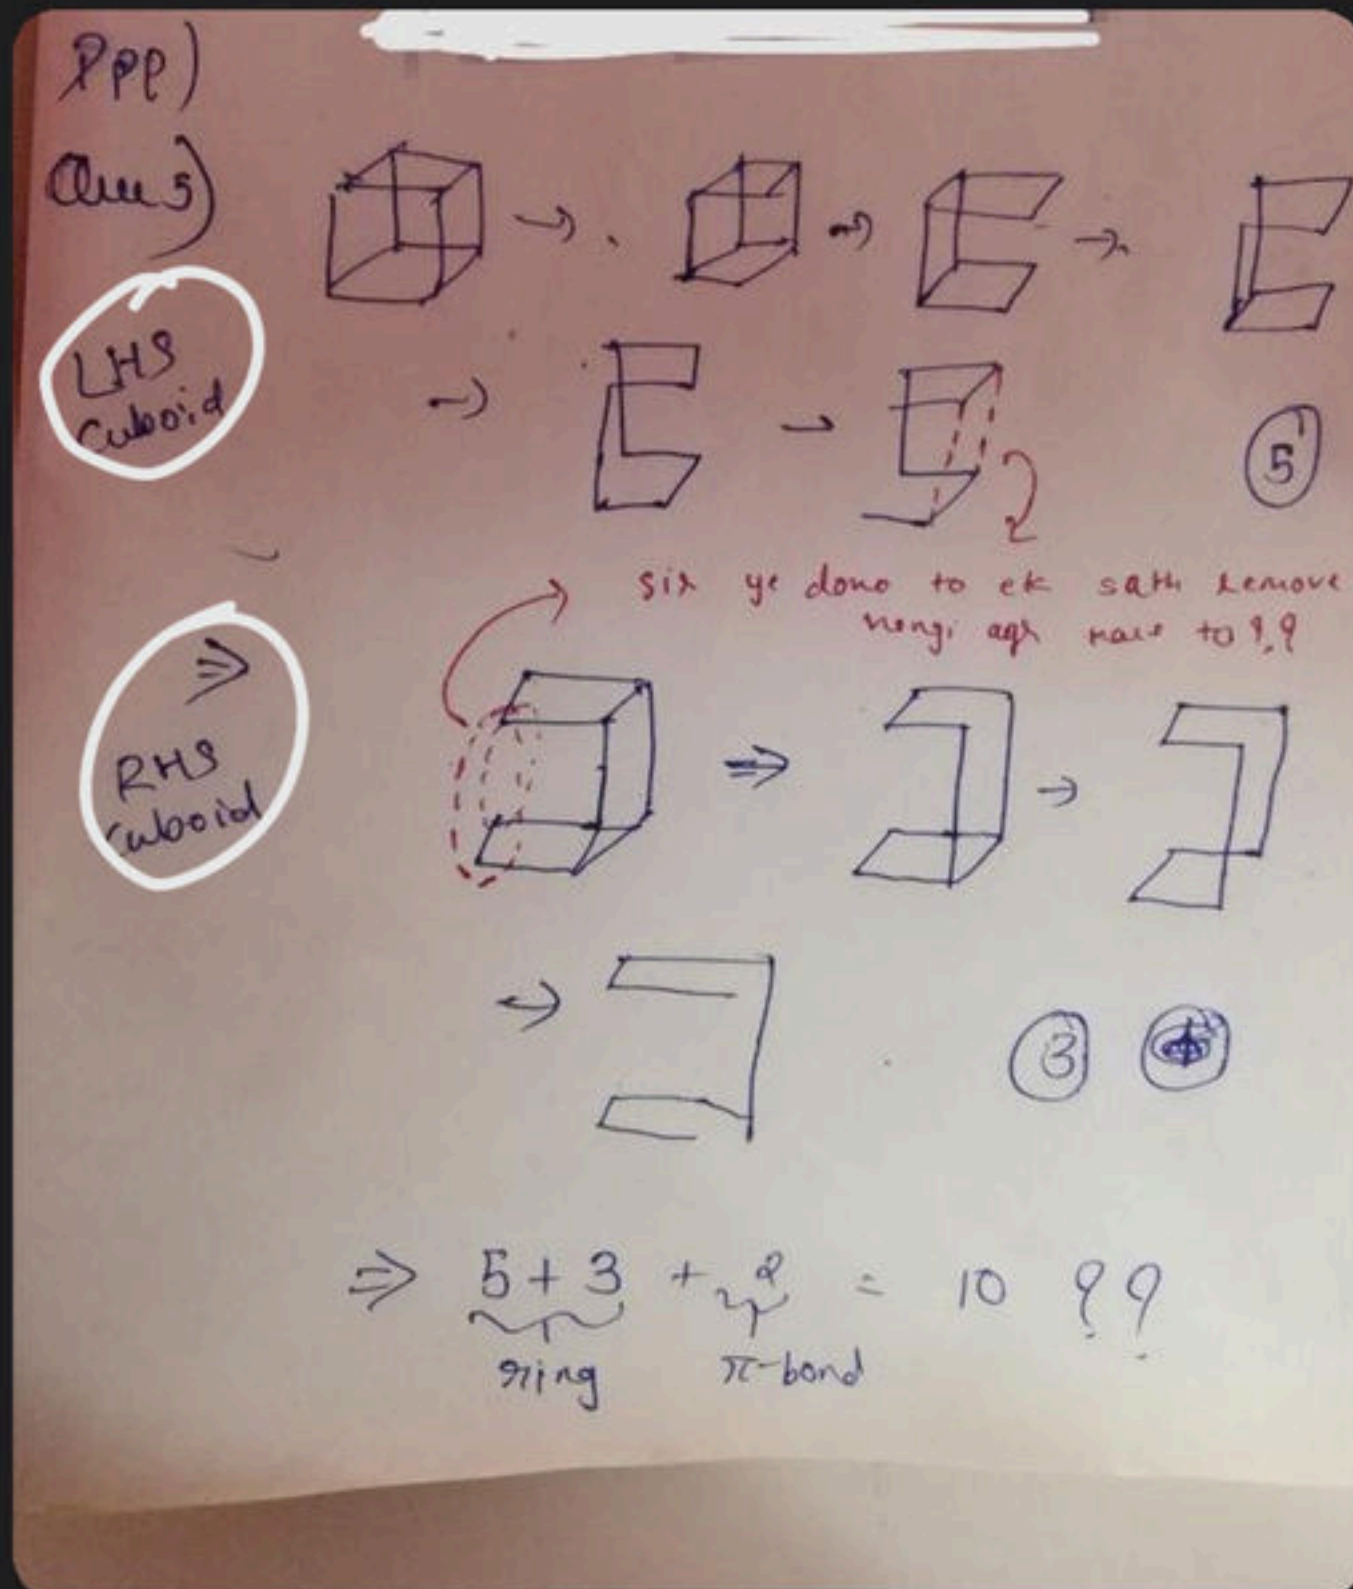 PPP)
Ques)
LHS
Cuboid
5
sir ye dono to ek sath remove
hongi agr kare to ??
RHS
Cuboid
3
⇒ 5 + 3 + 2 = 10 ??
ring π-bond